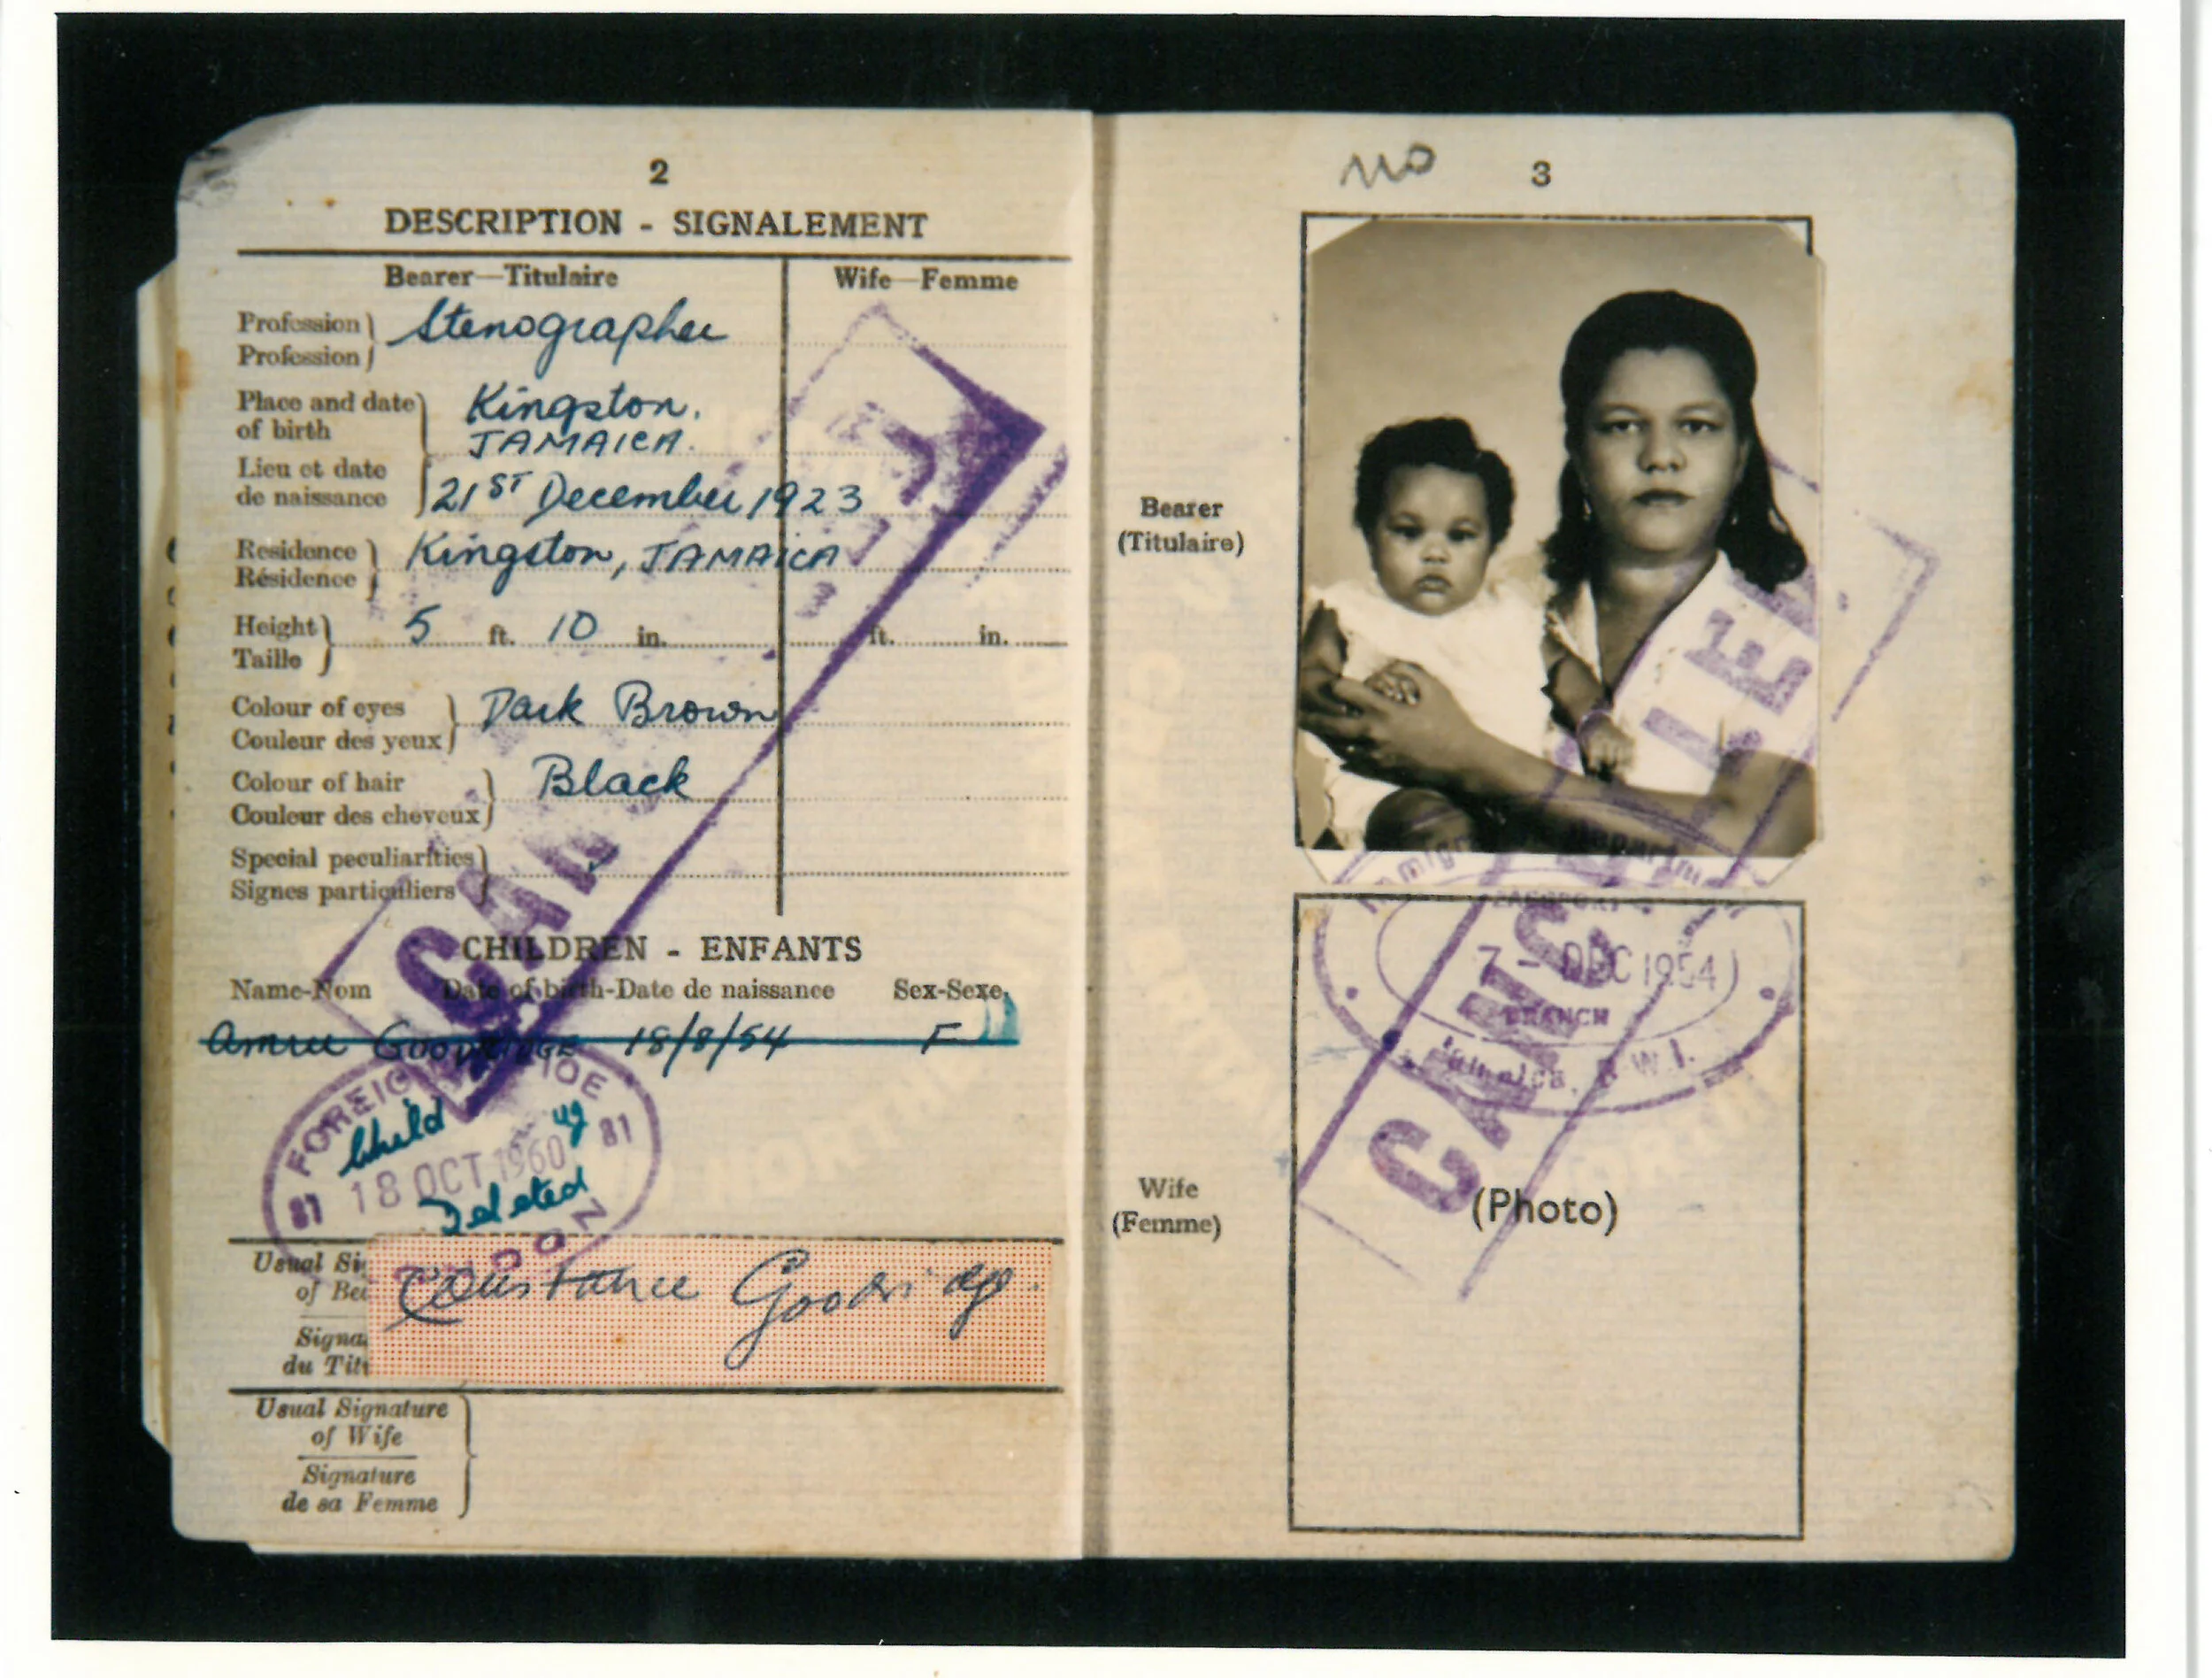 2
DESCRIPTION - SIGNALEMENT
Bearer—Titulaire
Wife—Femme
Profession
Profession
Stenographer
Place and date
of birth
Lieu et date
de naissance
Kingston.
JAMAICA.
21ST December 1923
Residence
Résidence
Kingston, JAMAICA
Height
Taille
5 ft. 10 in.
ft. in.
Colour of eyes
Couleur des yeux
Dark Brown
Colour of hair
Couleur des cheveux
Black
Special peculiarities
Signes particuliers
CHILDREN - ENFANTS
Name-Nom Date of birth-Date de naissance Sex-Sexe
GOODRIDGE 18/8/54 F
FOREIGN OFFICE
Child
81 18 OCT 1960 81
Deleted
Usual Si
of Bea
Signa
du Tit
Constance Goodridge.
Usual Signature
of Wife
Signature
de sa Femme
3
Bearer
(Titulaire)
CANCELLED
Immigration Department
PASSPORT
7 - DEC 1954
BRANCH
Jamaica, B.W.I.
CANCELLED
Wife
(Femme)
(Photo)